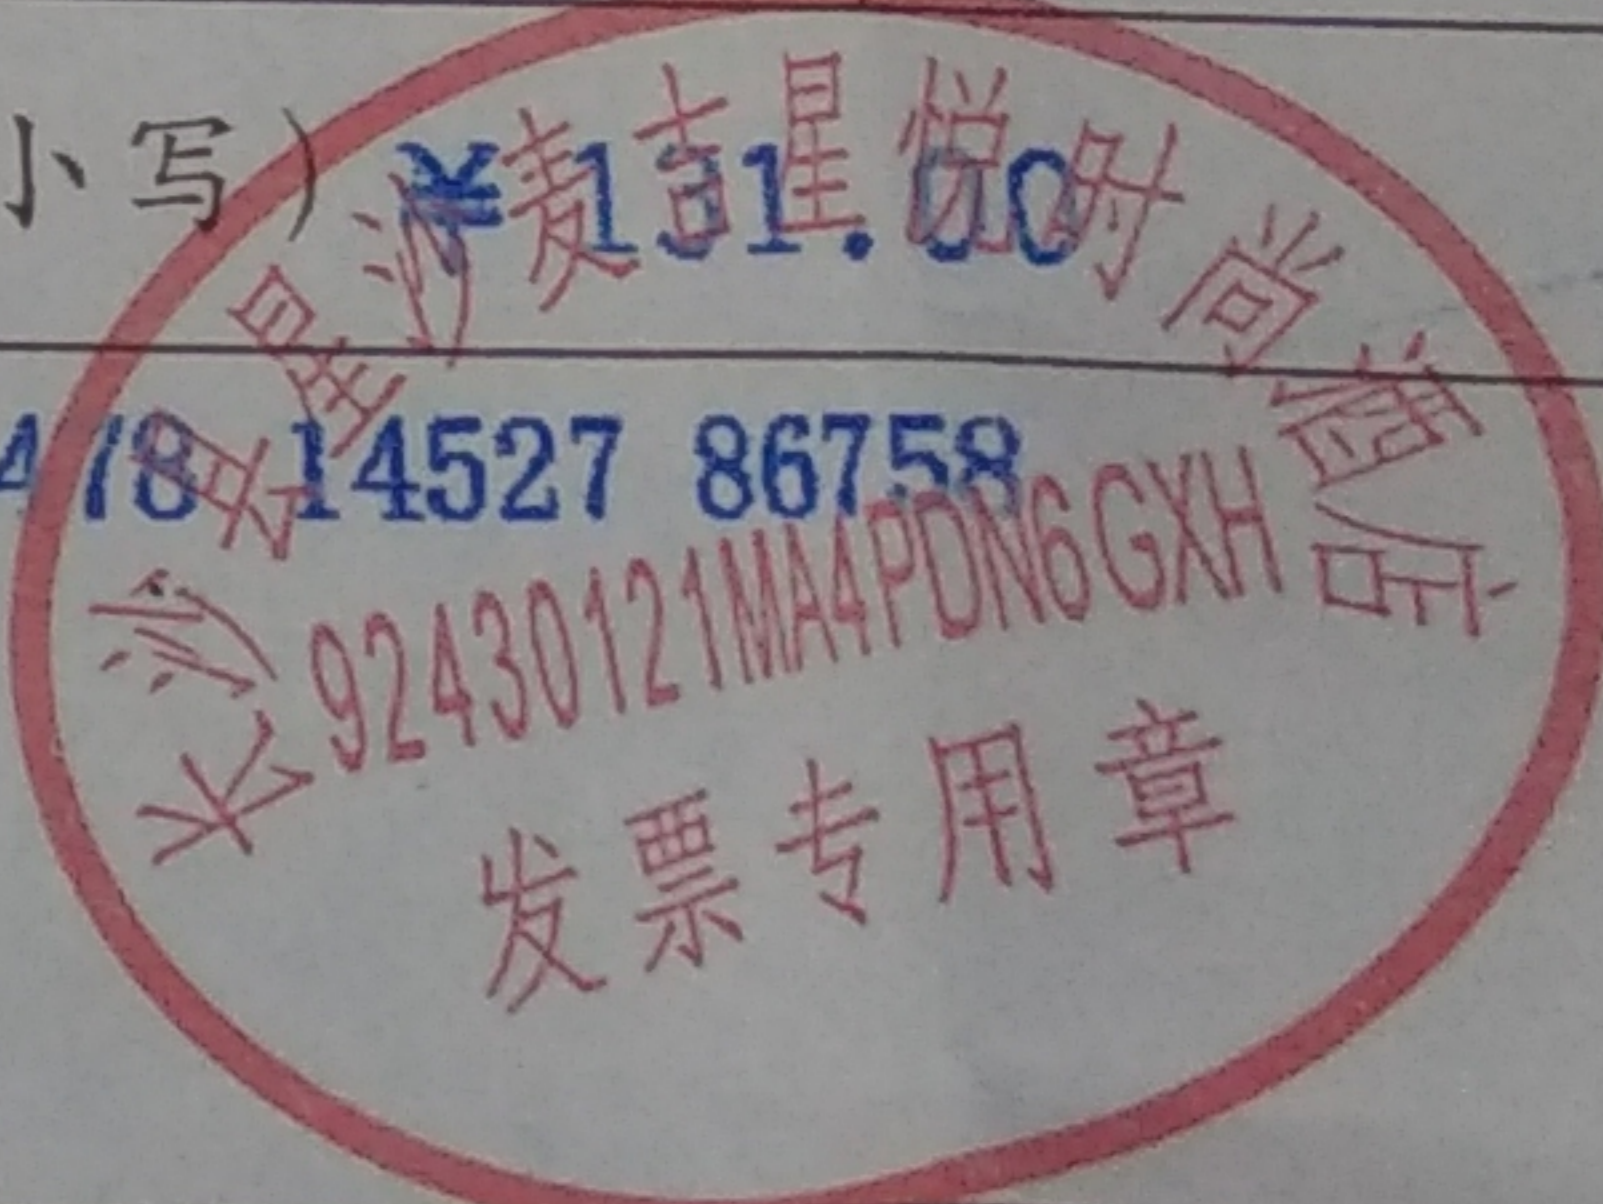 小写）
¥131.00
478 14527 86758
长沙县星沙麦吉星悦时尚酒店
92430121MA4PDN6GXH
发票专用章